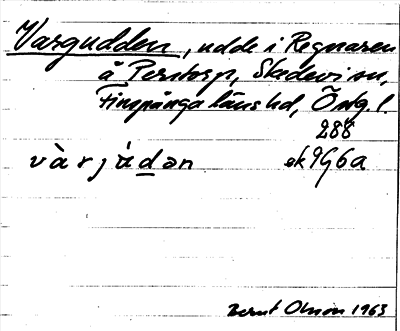 Vargudden, udde i Regnaren
å Perstorp, Skedevi sn,
Finspånga läns hd, Östg. l.
288
vàrjúdən ek 9G6a
Bernt Olsson 1963